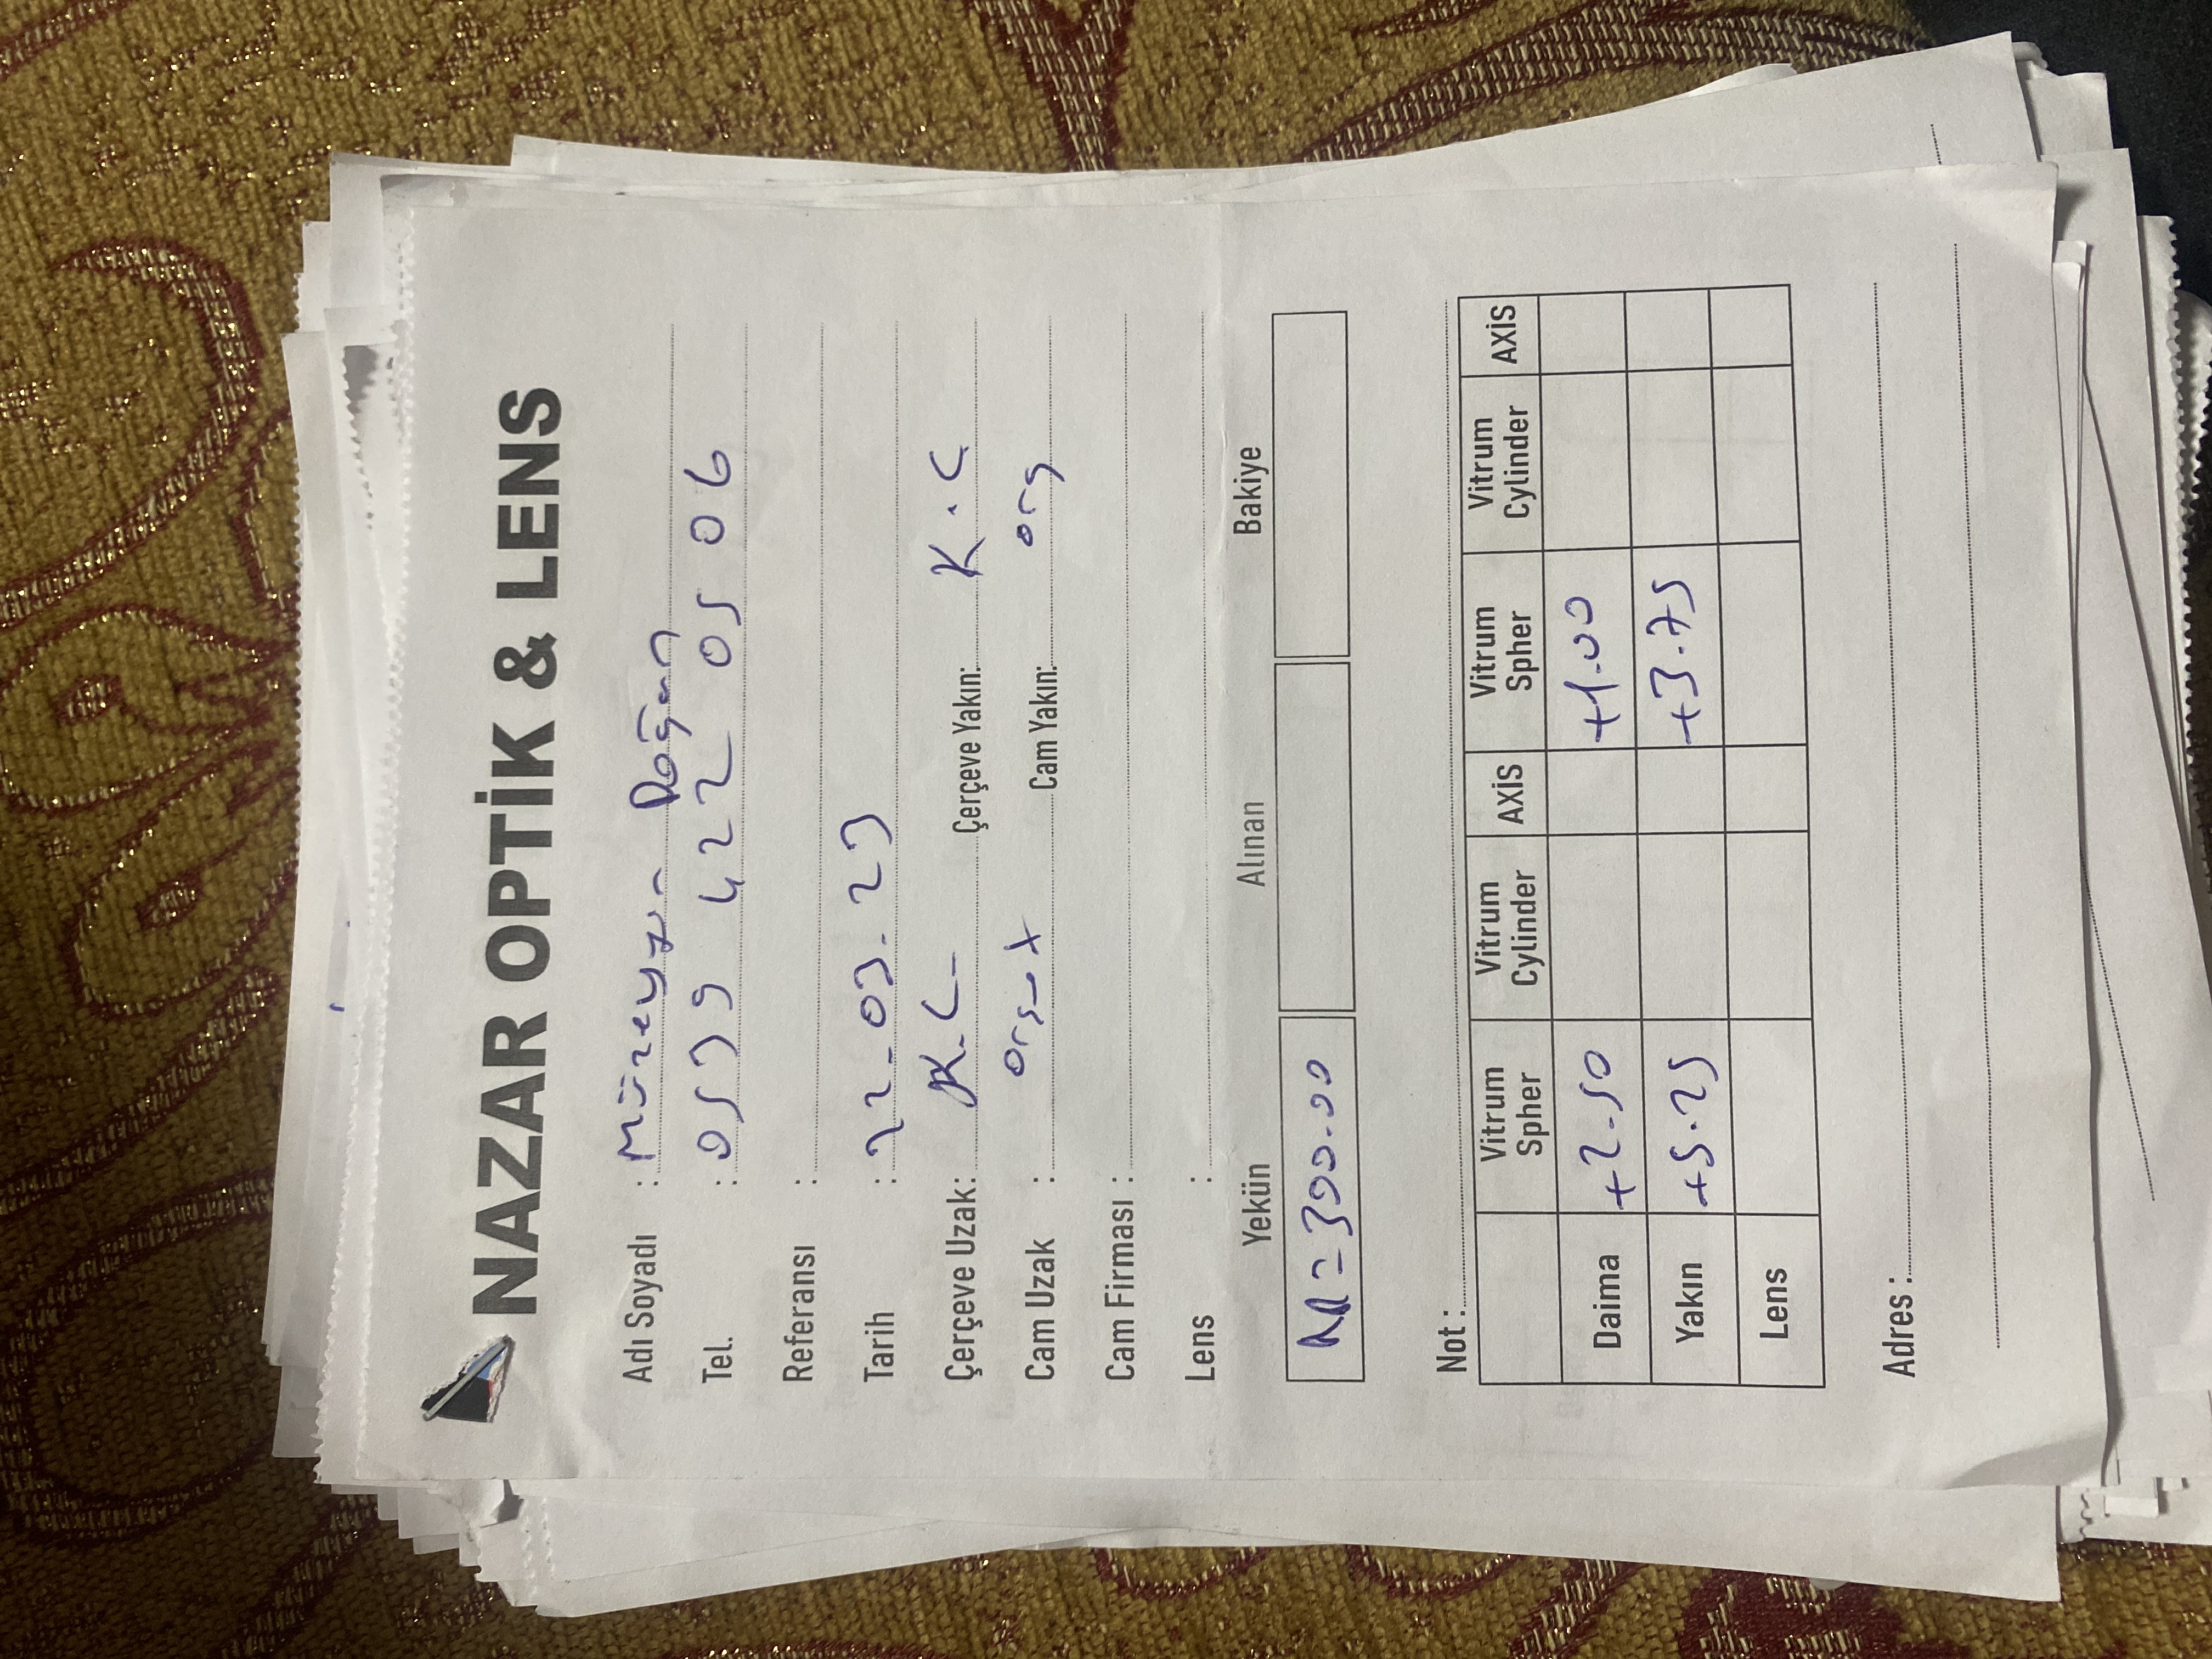 NAZAR OPTİK & LENS
Adı Soyadı : Müzeyyen Doğan
Tel. : 0539 422 05 06
Referansı :
Tarih : 22.03.23
Çerçeve Uzak: K.C Çerçeve Yakın: K.C
Cam Uzak : Cam Yakın: org
Cam Firması :
Lens :
Yekün Alınan Bakiye
= 300.00
Not :
Vitrum Spher Vitrum Cylinder AXİS Vitrum Spher Vitrum Cylinder AXİS
Daima +2.50 +1.00
Yakın +5.25 +3.75
Lens
Adres :